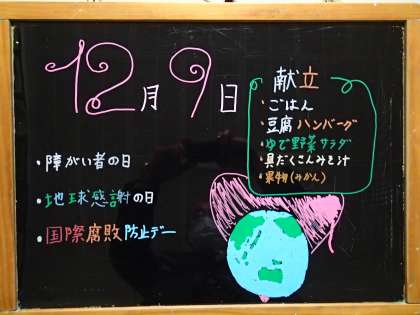 12月9日
・障がい者の日
・地球感謝の日
・国際腐敗防止デー
献立
・ごはん
・豆腐ハンバーグ
・ゆで野菜サラダ
・具だくさんみそ汁
・果物(みかん)